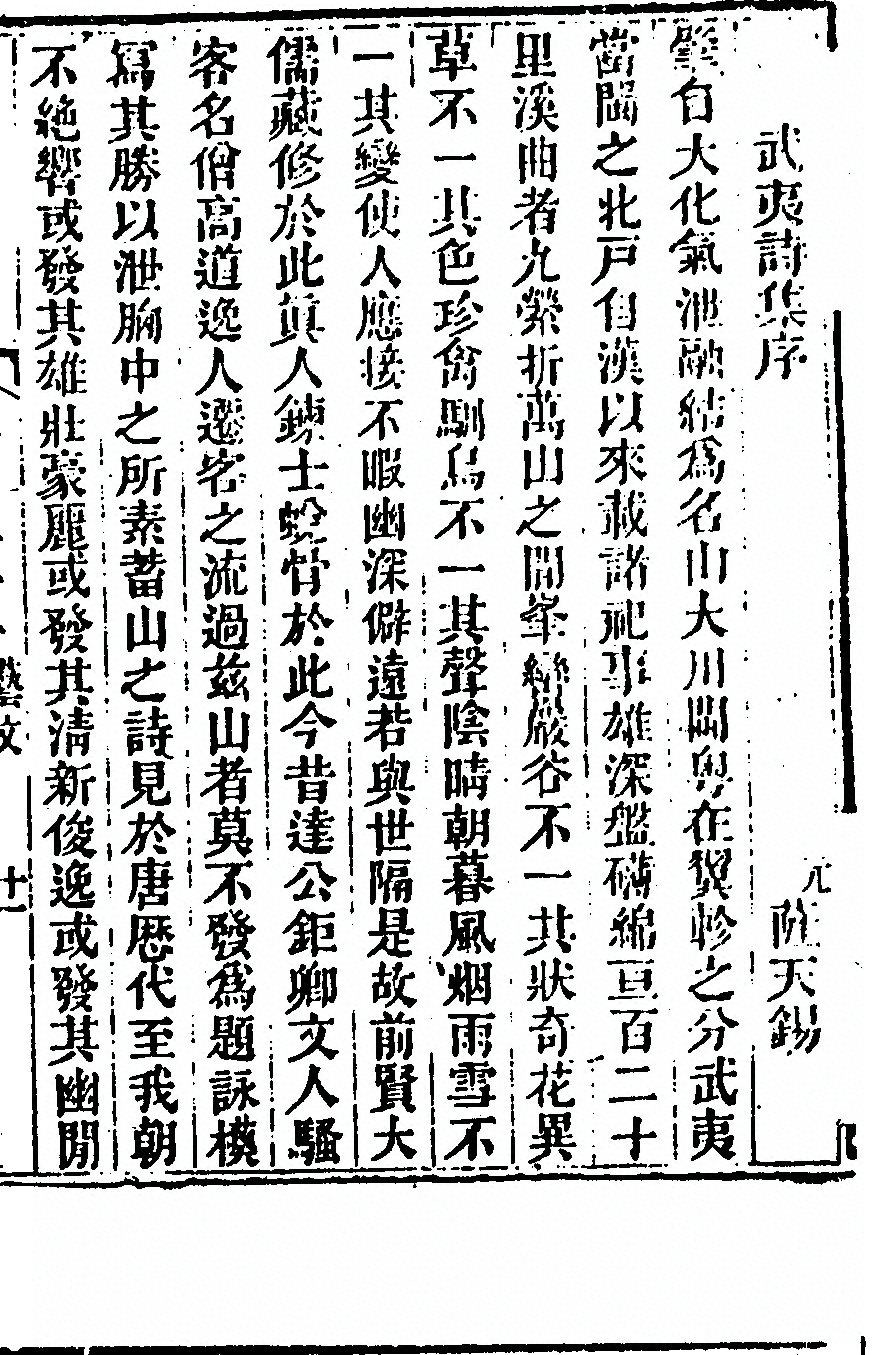 武夷詩集序
元 薩天錫
肇自大化氣泄融結爲名山大川閩粤在翼軫之分武夷
當閩之北戸自漢以來載諸祀事雄深盤礴綿亘百二十
里溪曲者九縈折萬山之間峯巒巖谷不一其狀奇花異
草不一其色珍禽馴鳥不一其聲陰晴朝暮風烟雨雪不
一其變使人應接不暇幽深僻遠若與世隔是故前賢大
儒藏修於此眞人鍊士蛻骨於此今昔達公鉅卿文人騷
客名僧高道逸人遷客之流過兹山者莫不發爲題詠模
寫其勝以泄胸中之所素蓄山之詩見於唐歷代至我朝
不絶響或發其雄壯豪麗或發其清新俊逸或發其幽閒
藝文
十一